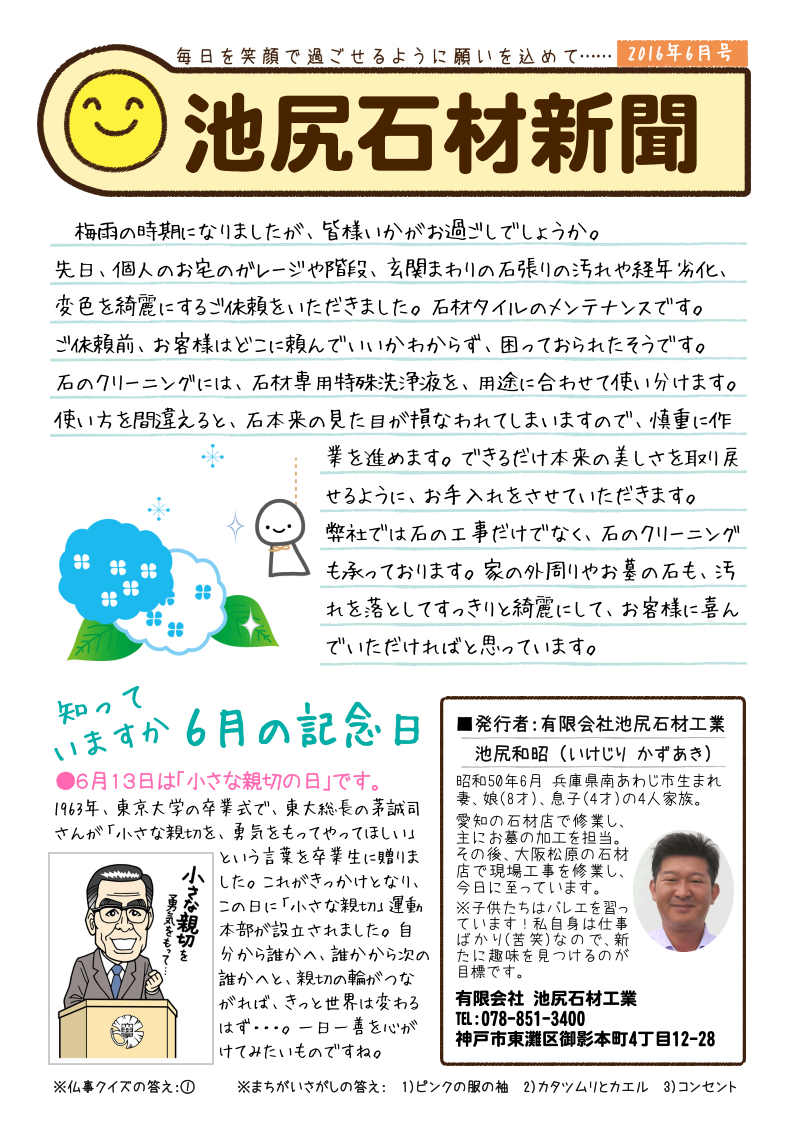 毎日を笑顔で過ごせるように願いを込めて……
2016年6月号
池尻石材新聞
梅雨の時期になりましたが、皆様いかがお過ごしでしょうか。
先日、個人のお宅のガレージや階段、玄関まわりの石張りの汚れや経年劣化、
変色を綺麗にするご依頼をいただきました。石材タイルのメンテナンスです。
ご依頼前、お客様はどこに頼んでいいかわからず、困っておられたそうです。
石のクリーニングには、石材専用特殊洗浄液を、用途に合わせて使い分けます。
使い方を間違えると、石本来の見た目が損なわれてしまいますので、慎重に作
業を進めます。できるだけ本来の美しさを取り戻
せるように、お手入れをさせていただきます。
弊社では石の工事だけでなく、石のクリーニング
も承っております。家の外周りやお墓の石も、汚
れを落としてすっきりと綺麗にして、お客様に喜ん
でいただければと思っています。
知って
いますか
6月の記念日
●6月13日は「小さな親切の日」です。
1963年、東京大学の卒業式で、東大総長の茅誠司
さんが「小さな親切を、勇気をもってやってほしい」
という言葉を卒業生に贈りま
した。これがきっかけとなり、
この日に「小さな親切」運動
本部が設立されました。自
分から誰かへ、誰かから次の
誰かへと、親切の輪がつな
がれば、きっと世界は変わる
はず・・・。一日一善を心が
けてみたいものですね。
小さな親切を
勇気をもって…
■発行者：有限会社池尻石材工業
池尻和昭（いけじり かずあき）
昭和50年6月 兵庫県南あわじ市生まれ
妻、娘(8才)、息子(4才)の4人家族。
愛知の石材店で修業し、
主にお墓の加工を担当。
その後、大阪松原の石材
店で現場工事を修業し、
今日に至っています。
※子供たちはバレエを習っ
ています！私自身は仕事
ばかり(苦笑)なので、新
たに趣味を見つけるのが
目標です。
有限会社 池尻石材工業
TEL：078-851-3400
神戸市東灘区御影本町4丁目12-28
※仏事クイズの答え：①
※まちがいさがしの答え： 1)ピンクの服の袖 2)カタツムリとカエル 3)コンセント